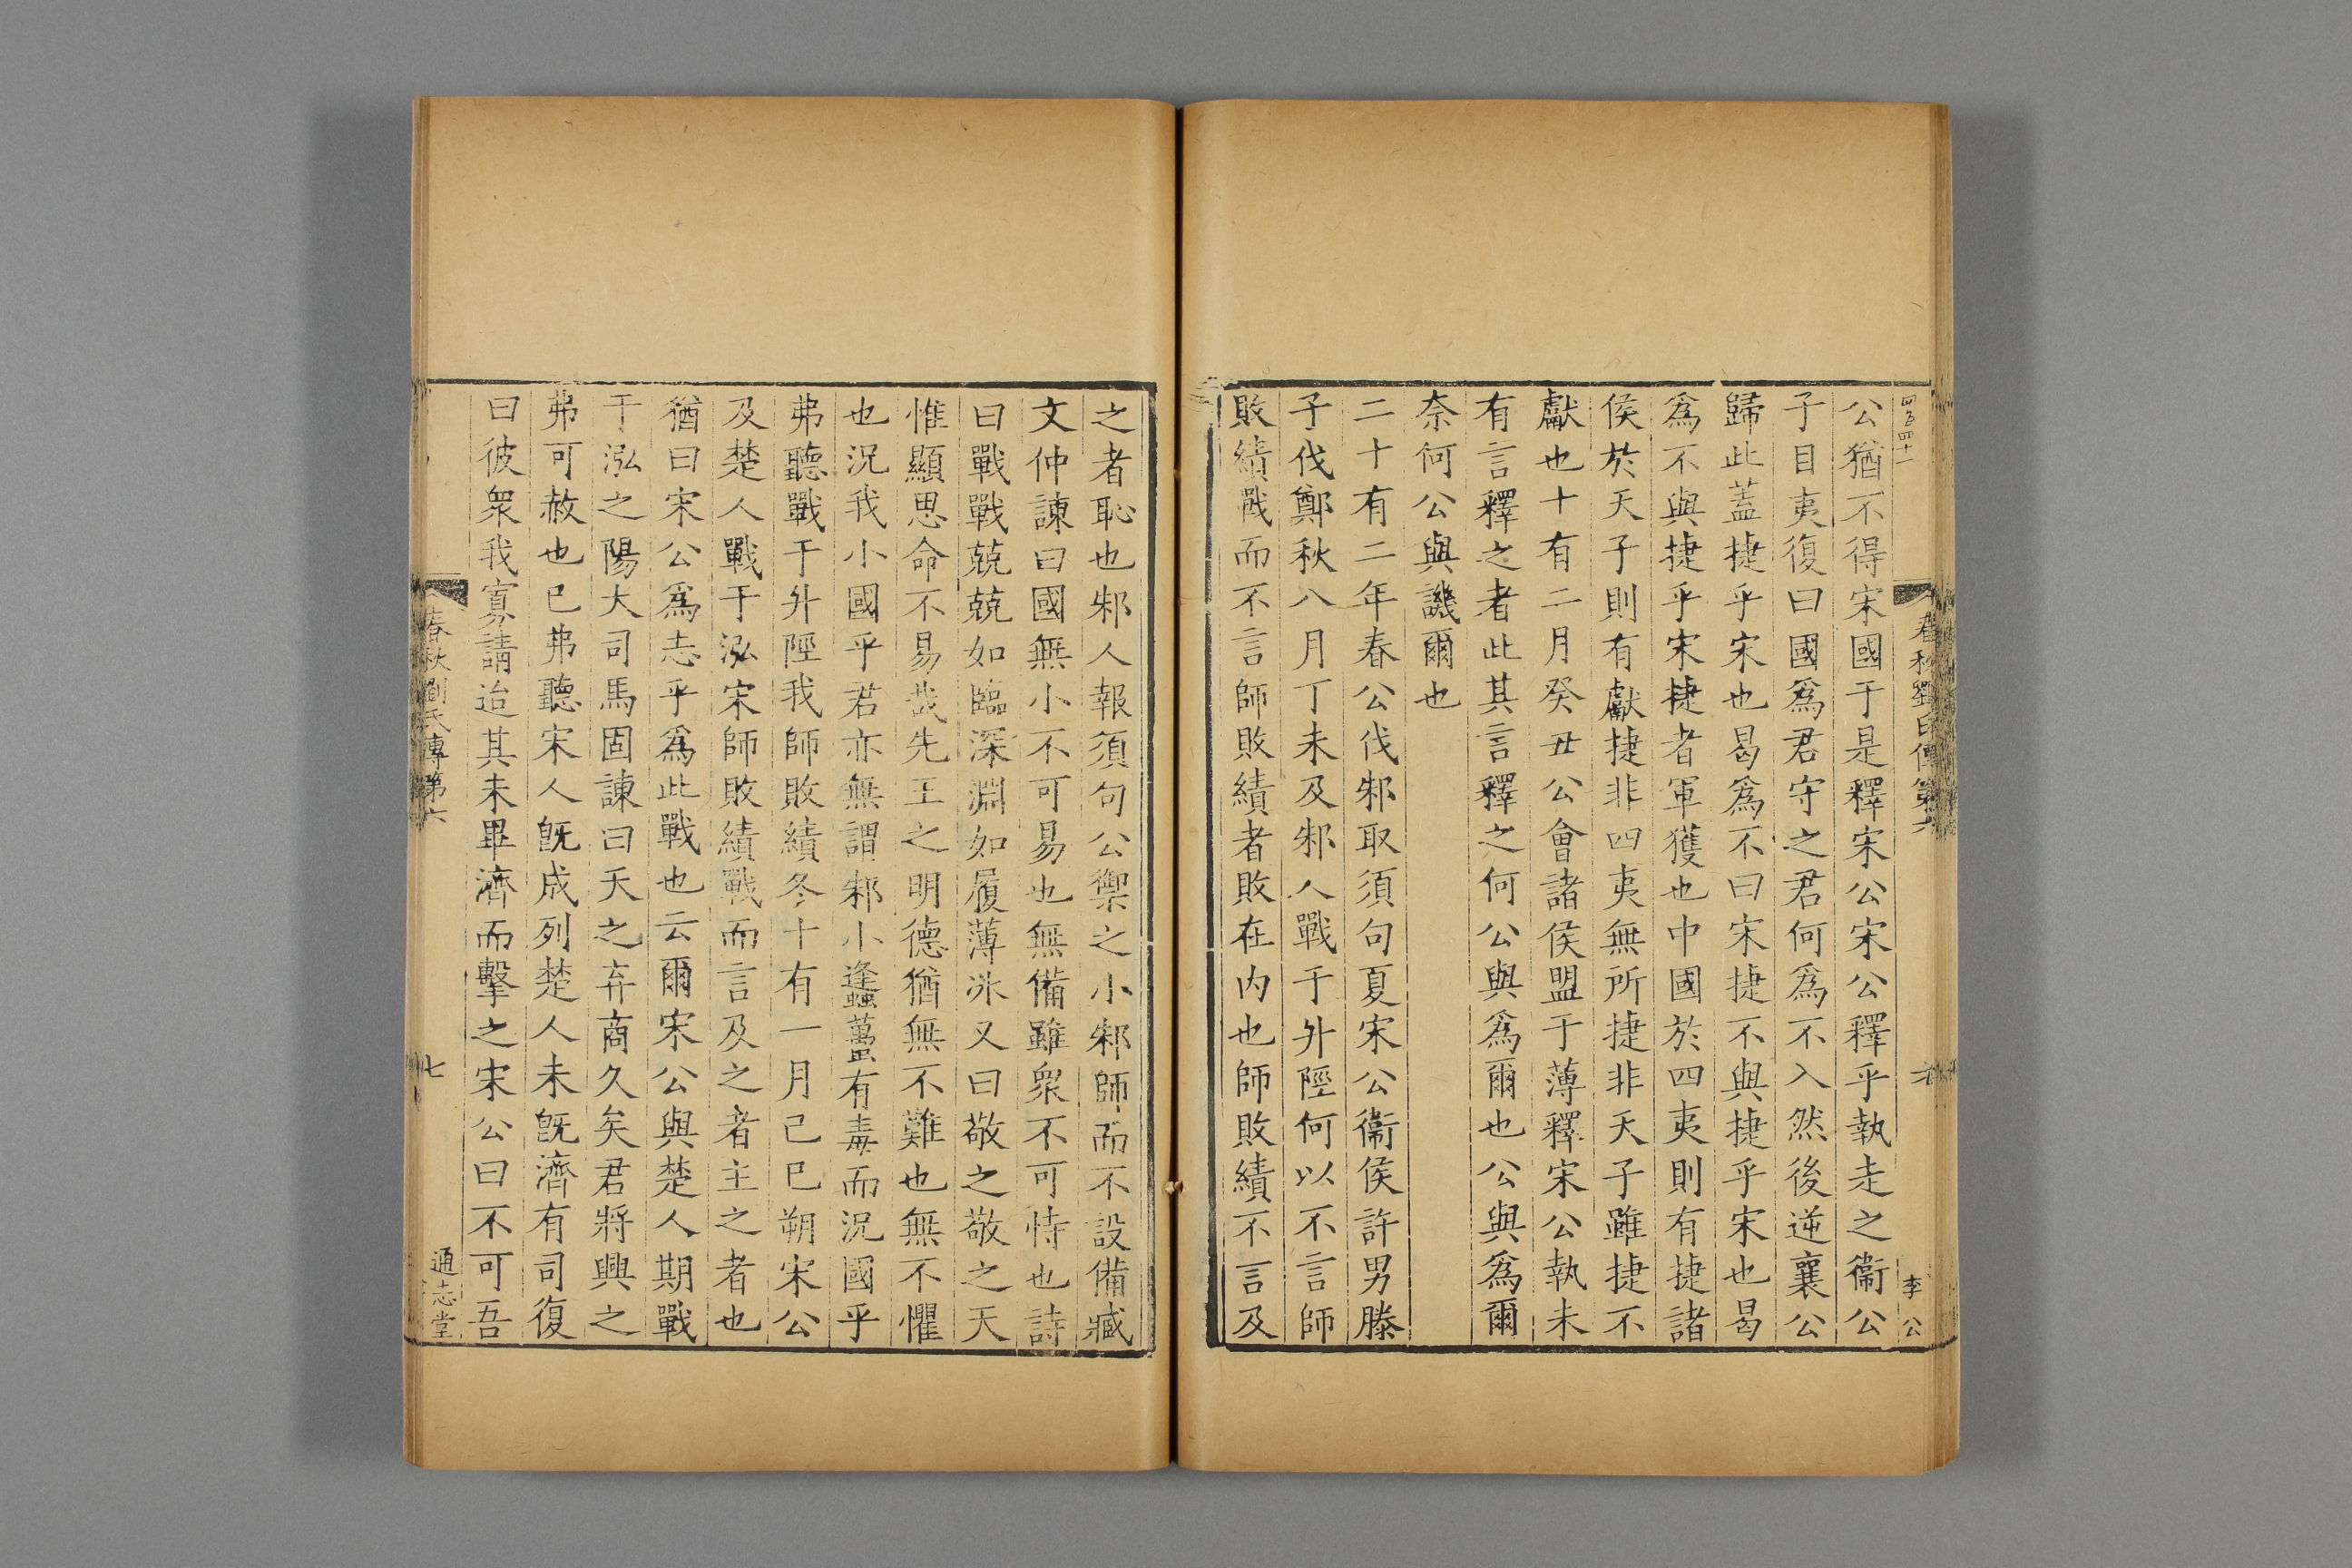 四百四十一
春秋劉氏傳第六
六
李公
公猶不得宋國于是釋宋公宋公釋乎執走之衞公
子目夷復曰國爲君守之君何爲不入然後逆襄公
歸此蓋捷乎宋也曷爲不曰宋捷不與捷乎宋也曷
爲不與捷乎宋捷者軍獲也中國於四夷則有捷諸
侯於天子則有獻捷非四夷無所捷非天子雖捷不
獻也十有二月癸丑公會諸侯盟于薄釋宋公執未
有言釋之者此其言釋之何公與爲爾也公與爲爾
奈何公與譏爾也
二十有二年春公伐邾取須句夏宋公衞侯許男滕
子伐鄭秋八月丁未及邾人戰于升陘何以不言師
敗績戰而不言師敗績者敗在内也師敗績不言及
之者恥也邾人報須句公禦之小邾師而不設備臧
文仲諫曰國無小不可易也無備雖衆不可恃也詩
曰戰戰兢兢如臨深淵如履薄冰又曰敬之敬之天
惟顯思命不易哉先王之明德猶無不難也無不懼
也況我小國乎君亦無謂邾小蠭蠆有毒而況國乎
弗聽戰于升陘我師敗績冬十有一月己巳朔宋公
及楚人戰于泓宋師敗績戰而言及之者主之者也
猶曰宋公爲志乎爲此戰也云爾宋公與楚人期戰
于泓之陽大司馬固諫曰天之弃商久矣君將興之
弗可赦也已弗聽宋人旣成列楚人未旣濟有司復
曰彼衆我寡請迨其未畢濟而擊之宋公曰不可吾
春秋劉氏傳第六
七
通志堂